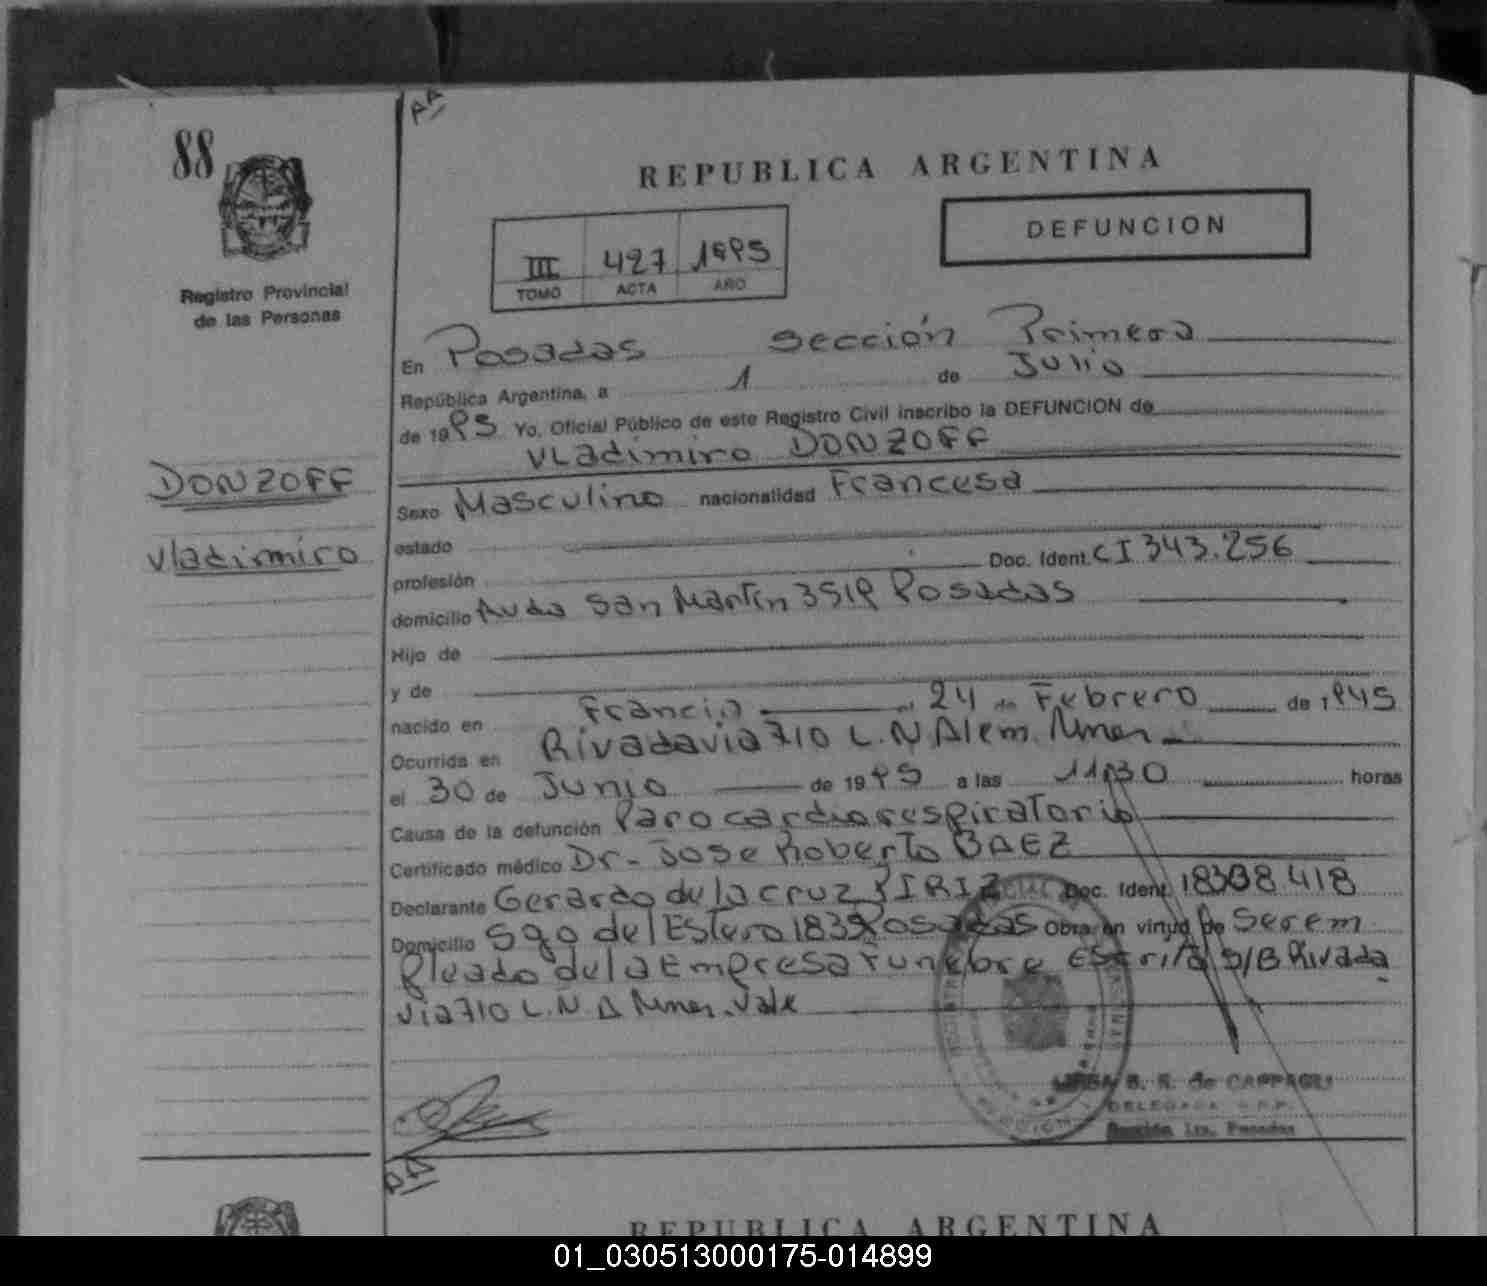 88
REPUBLICA ARGENTINA
DEFUNCION
III 427 1995
TOMO ACTA AÑO
Registro Provincial
de las Personas
En Posadas Sección Primera
República Argentina, a 1 de Julio
de 1995 Yo, Oficial Público de este Registro Civil inscribo la DEFUNCION de
Vladimiro DONZOFF
DONZOFF
Vladimiro
Sexo Masculino nacionalidad Francesa
estado
profesión Doc. Ident. CI 343.256
domicilio Avda San Martín 3519 Posadas
Hijo de
y de
nacido en Francia el 24 de Febrero de 1945
Ocurrida en Rivadavia 710 L.N Alem. Mnes
el 30 de Junio de 1995 a las 11,30 horas
Causa de la defunción Paro cardiorespiratorio
Certificado médico Dr. Jose Roberto BAEZ
Declarante Gerardo de la cruz Doc. Ident. 18308.418
Domicilio Sgo del Estero 1839 Posadas Obra en virtud de Ser em
pleado de la Empresa Funebre S/B Rivada
via 710 L.N.A Mnes. Vale
B. R. de CAPPAGLI
DELEGADA
Sección 1ra. Posadas
REPUBLICA ARGENTINA
01_030513000175-014899